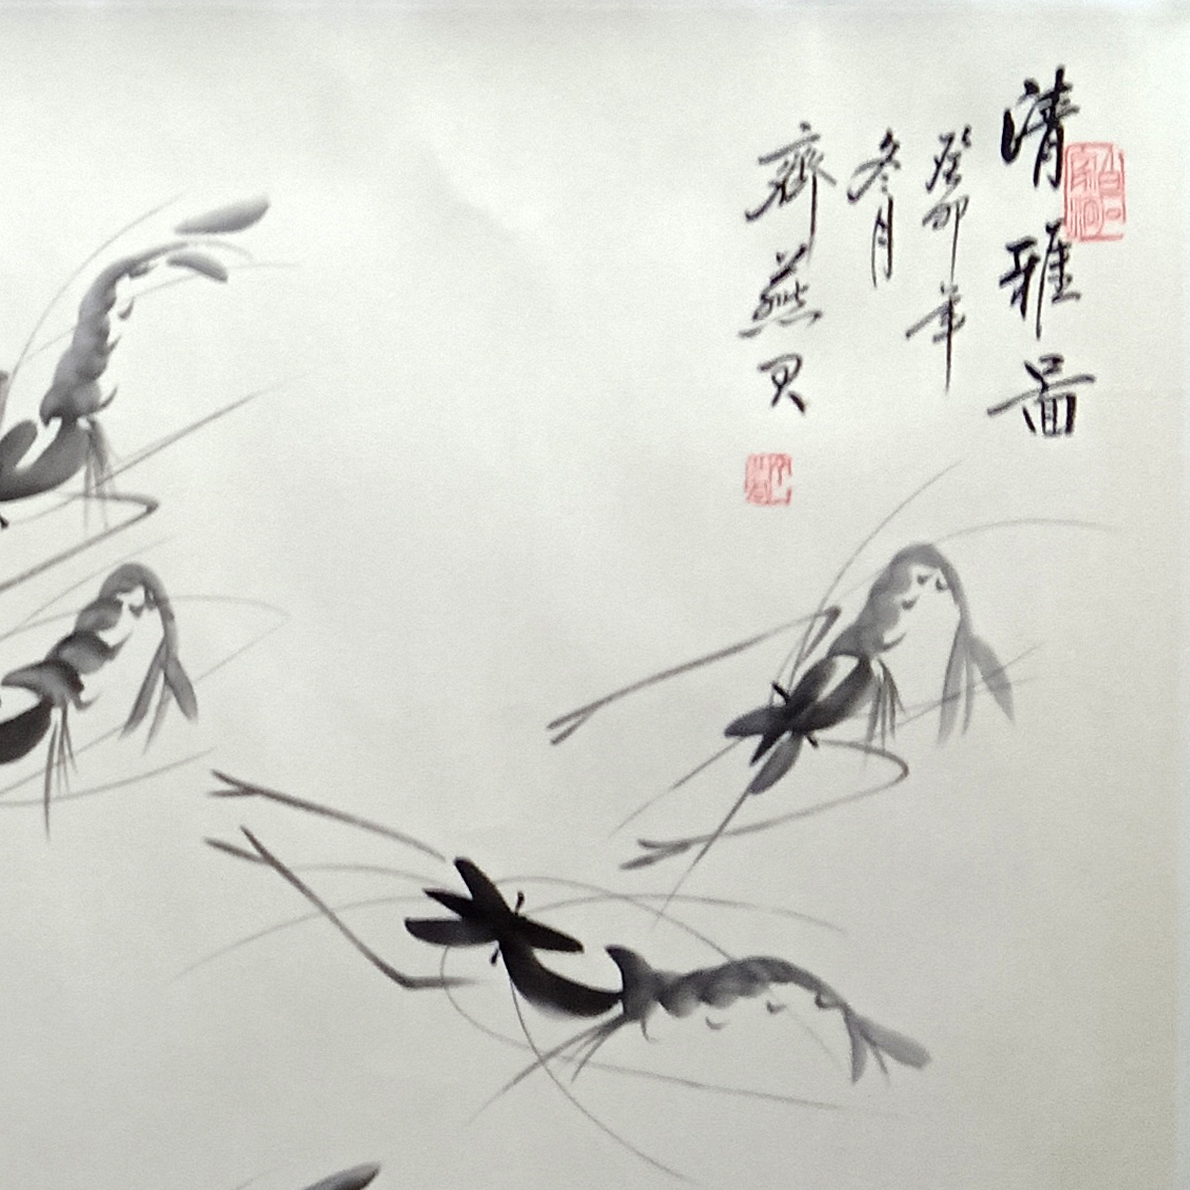 清雅图
癸卯年
冬月
齊燕贝